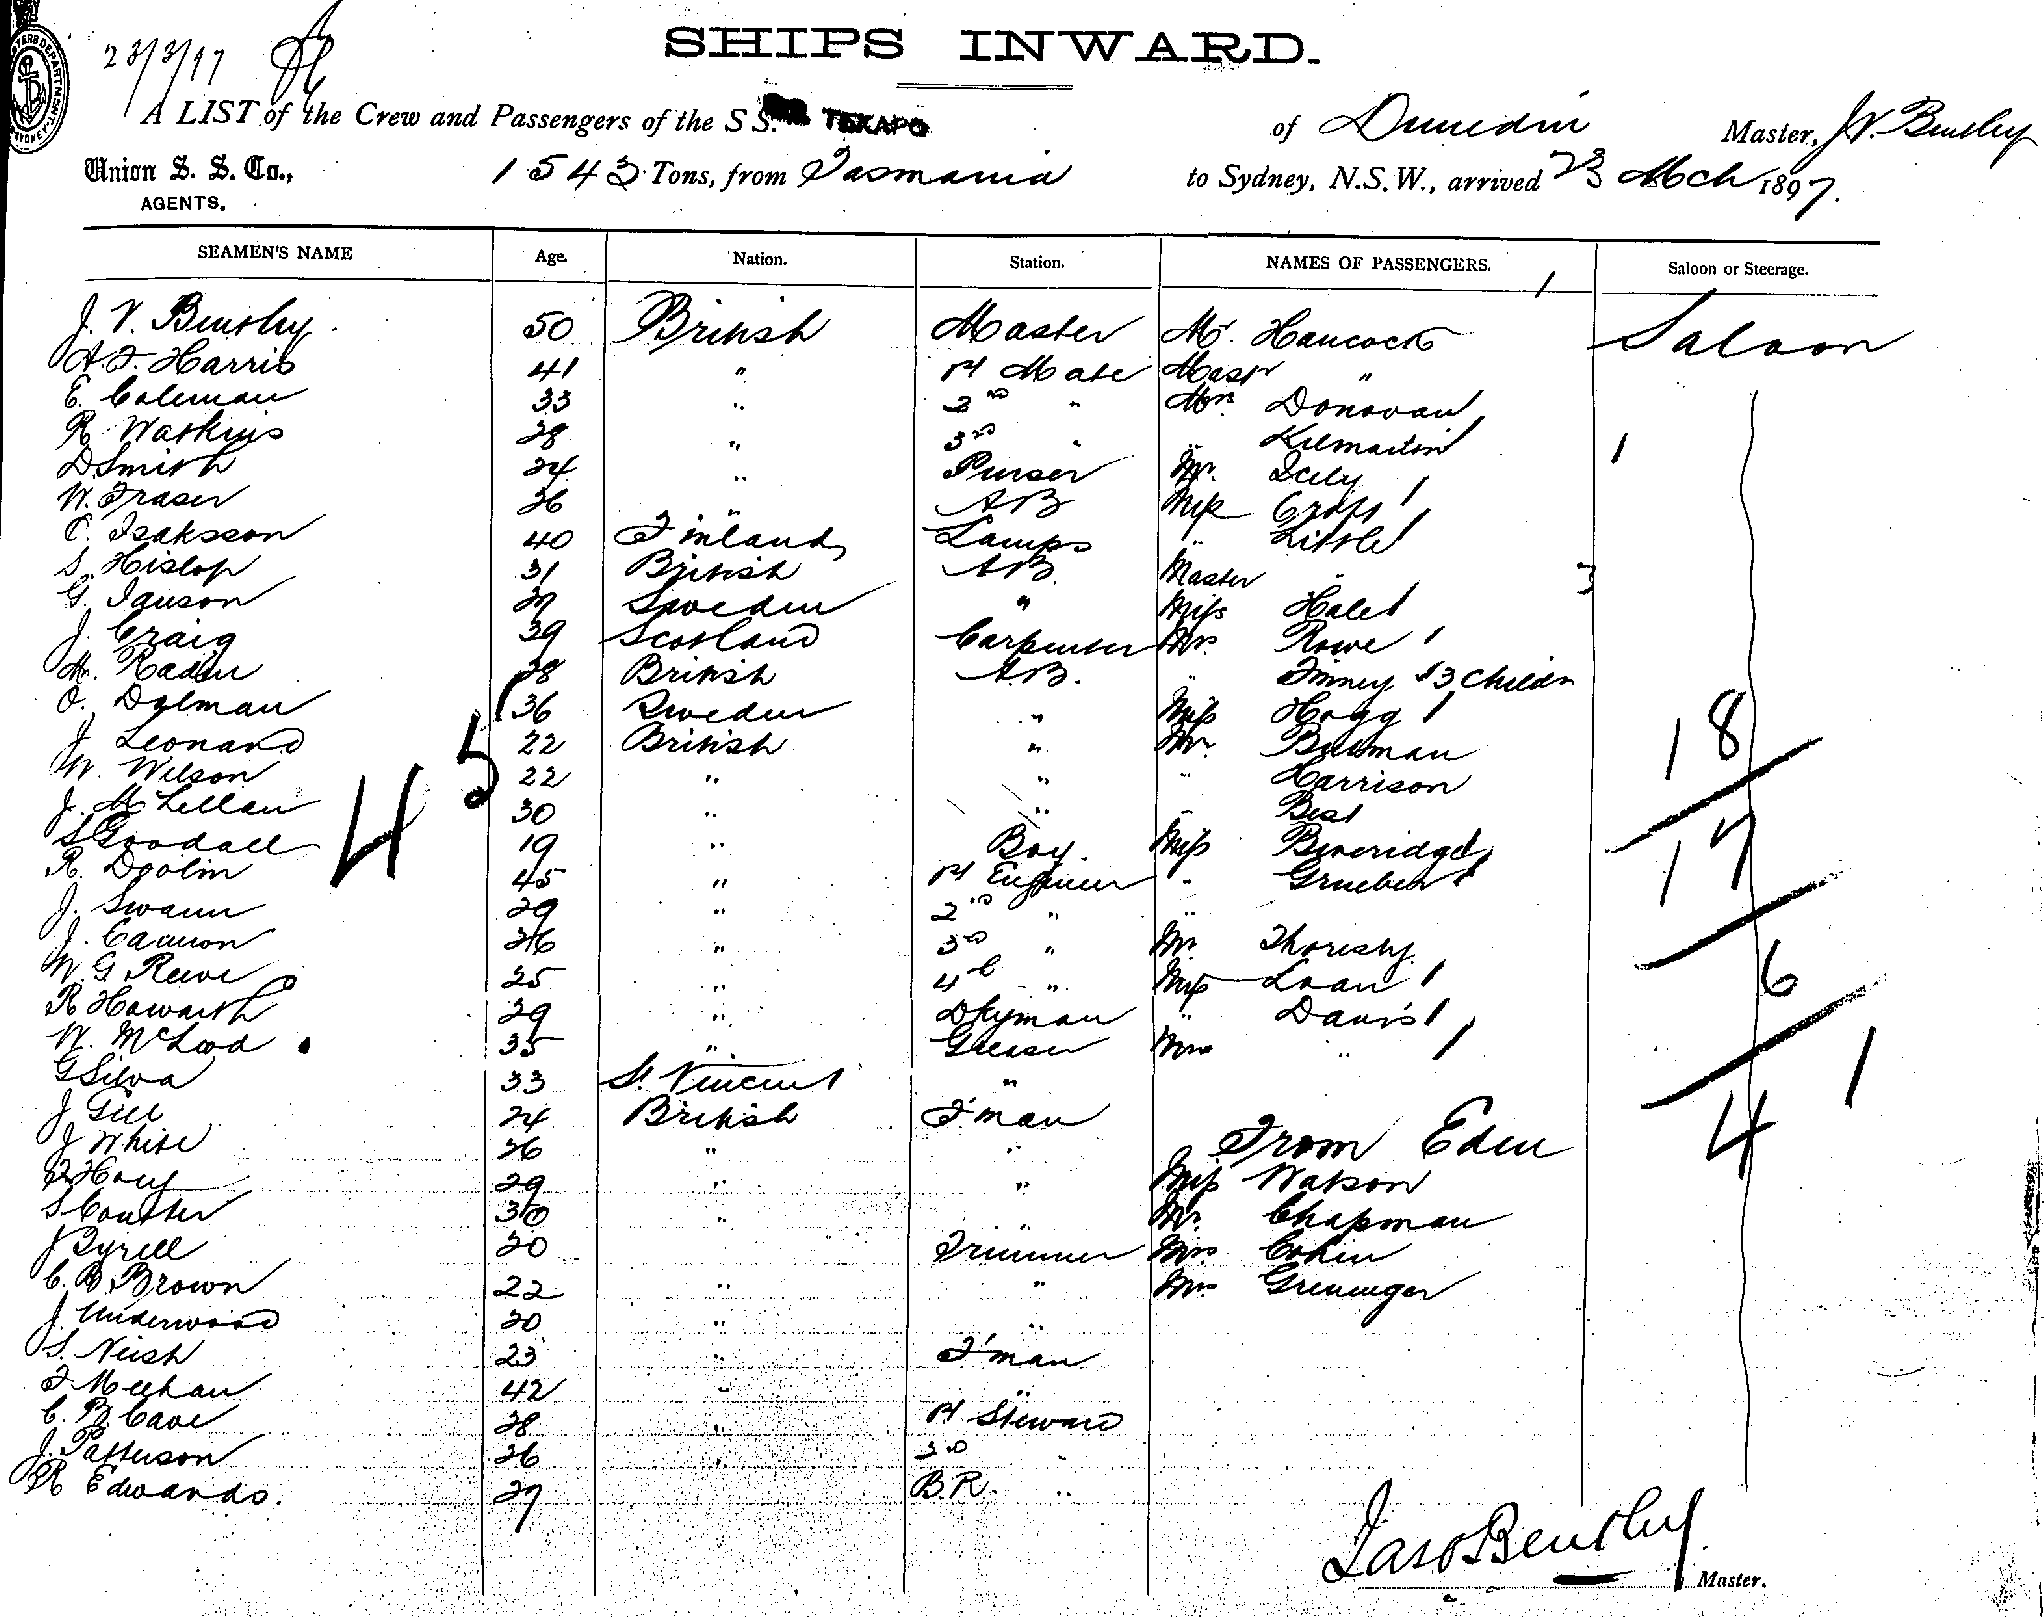 23/3/97
SHIPS INWARD.
A LIST of the Crew and Passengers of the S S. TEKAPO of Dunedin Master, J.V. Bensley
Union S. S. Co., 1543 Tons, from Tasmania to Sydney, N.S.W., arrived 23 Mch 1897.
AGENTS.
SEAMEN'S NAME Age. Nation. Station. NAMES OF PASSENGERS. Saloon or Steerage.
J. V. Bensley 50 British Master Mr. Hancock Saloon
A. F. Harris 41 " 1st Mate Mastr "
E. Coleman 33 " 2nd " Mrs Donovan
R. Watkins 28 " 3rd " " Kilmartin 1
D Smith 24 " Purser Mr. Icely
W. Fraser 26 " AB Miss Cross
C. Isaksson 40 Finland Lamps " Little
S. Hislop 31 British AB. Master " 3
G. Janson 27 Sweden " Miss Hale
J. Craig 39 Scotland Carpenter Mrs. Rowe
M. Raden 28 British AB. " Finney & 3 Childn
O. Dylman 36 Sweden " Miss Hogg
J Leonard 22 British " Mr. 18
W. Wilson 22 " " " Harrison
J. McLellan 30 " " Best
S Goodall 19 " Boy. Miss Beveridge
R. Doolin 45 " 1st Engineer " Grueber 17
J. Swann 29 " 2nd " "
J. Cameron 26 " 3rd " Mr. Thoresby
W. G Reeve 25 " 4th " Miss Loan 6
R Howarth 29 " Dkyman " Davis
W. McLeod 35 " Greaser Mrs "
G Silva 33 St. Vincent " 1
J Gill 24 British F'man 4
J White 26 " " From Eden
F Hoey 29 " " Miss Watson
S Coulter 30 " " Mr. Chapman
J Byrell 20 Trimmer Mrs Cohen
C. B. Brown 22 " " Mrs
J. Underwood 20 " "
S. Neish 23 " F'man
F Meehan 42 " "
C. B. Cave 28 " 1st Steward
J. Patterson 26 " 2nd "
R Edwards. 27 B.R. "
45
Jas V Bensley
Master.